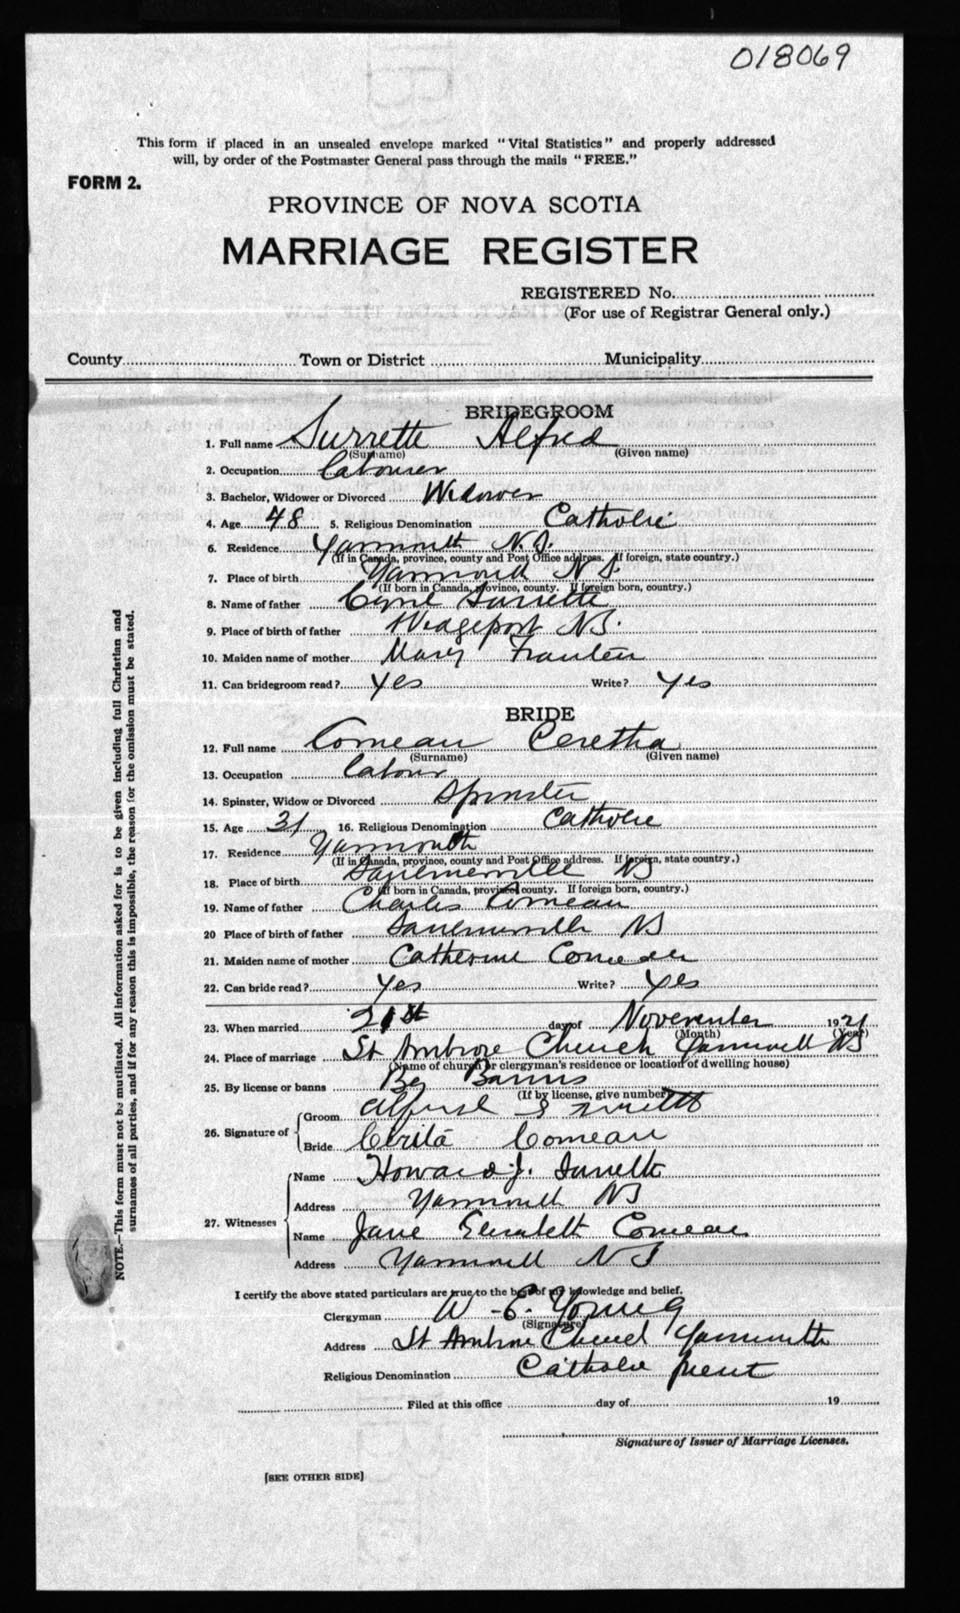 018069
This form if placed in an unsealed envelope marked "Vital Statistics" and properly addressed
will, by order of the Postmaster General pass through the mails "FREE."
FORM 2.
PROVINCE OF NOVA SCOTIA
MARRIAGE REGISTER
REGISTERED No.
(For use of Registrar General only.)
County Town or District Municipality
BRIDEGROOM
1. Full name Surrette Alfred
(Surname) (Given name)
2. Occupation Labourer
3. Bachelor, Widower or Divorced Widower
4. Age 48 5. Religious Denomination Catholic
6. Residence Yarmouth N.S.
(If in Canada, province, county and Post Office address. If foreign, state country.)
7. Place of birth Yarmouth N S.
(If born in Canada, province, county. If foreign born, country.)
8. Name of father Cyril Surrette
9. Place of birth of father Wedgeport NS.
10. Maiden name of mother Mary
11. Can bridegroom read? Yes Write? Yes
BRIDE
12. Full name Comeau Ceretha
(Surname) (Given name)
13. Occupation Labour
14. Spinster, Widow or Divorced Spinster
15. Age 31 16. Religious Denomination Catholic
17. Residence Yarmouth
(If in Canada, province, county and Post Office address. If foreign, state country.)
18. Place of birth Saulnierville NS
(If born in Canada, province county. If foreign born, country.)
19. Name of father Charles Comeau
20 Place of birth of father Saulnierville NS
21. Maiden name of mother Catherine Comeau
22. Can bride read? Yes Write? Yes
23. When married 21st day of November 1921
(Month) (Year)
24. Place of marriage St Ambrose Church Yarmouth NS
(Name of church or clergyman's residence or location of dwelling house)
25. By license or banns By Banns
(If by license, give number)
26. Signature of Groom Alfred Surrette
Bride Cerita Comeau
27. Witnesses Name Howard J. Surrette
Address Yarmouth NS
Name Jane Elizabeth Comeau
Address Yarmouth N S
I certify the above stated particulars are true to the best of my knowledge and belief.
Clergyman W. E. Young
(Signature)
Address St Ambrose Church Yarmouth
Religious Denomination Catholic priest
Filed at this office day of 19
Signature of Issuer of Marriage Licenses.
[SEE OTHER SIDE]
NOTE.—This form must not be mutilated. All information asked for is to be given including full Christian and
surnames of all parties, and if for any reason this is impossible, the reason for the omission must be stated.